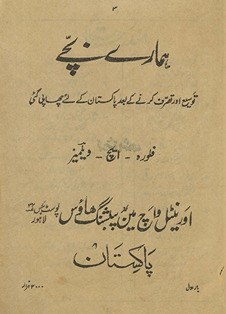 ۳
ہمارے بچّے
توسیع اور تصرّف کرنے کے بعد پاکستان کے لئے چھاپی گئی
فلورہ - ایچ - ولیمز
اورینٹل واچ مین پبلشنگ ہاؤس پوسٹ بکس لاہور
پاکستان
بار اول ۳۰۰۰ ہزار